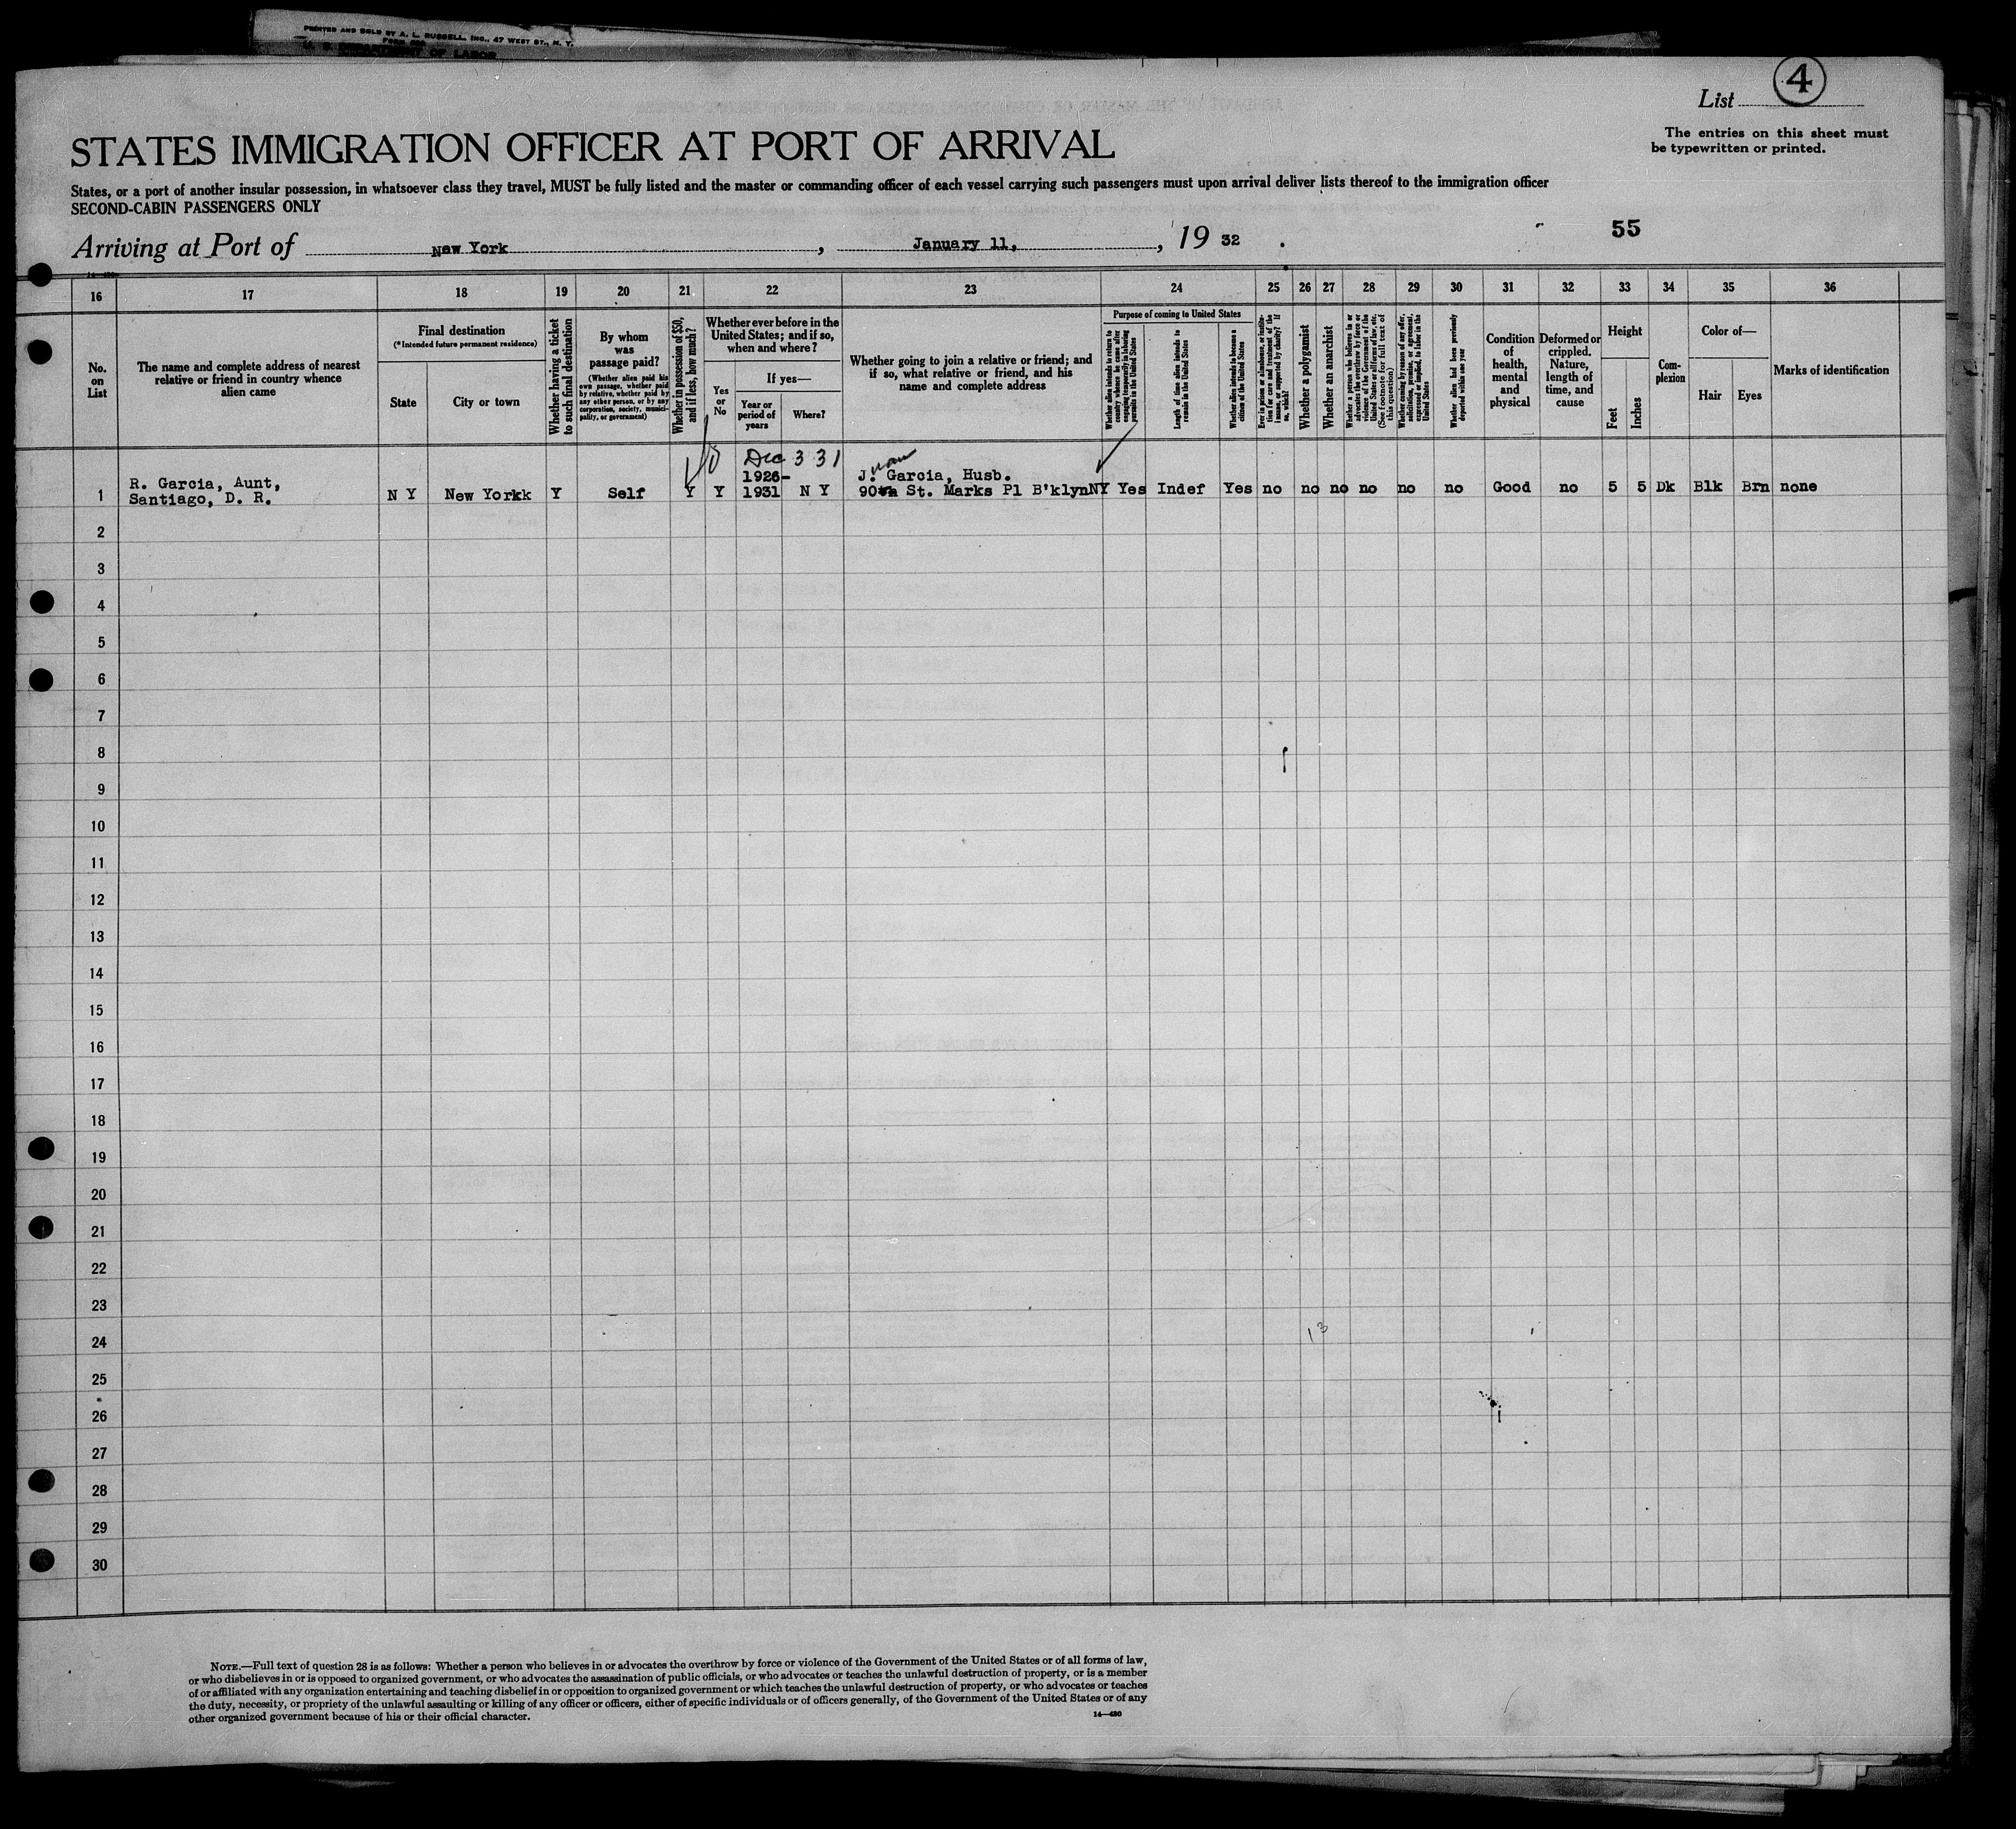 PRINTED AND SOLD BY A. L. RUSSELL, INC., 47 WEST ST., N. Y.
U. S. DEPARTMENT OF LABOR
List 4
The entries on this sheet must
be typewritten or printed.
STATES IMMIGRATION OFFICER AT PORT OF ARRIVAL
States, or a port of another insular possession, in whatsoever class they travel, MUST be fully listed and the master or commanding officer of each vessel carrying such passengers must upon arrival deliver lists thereof to the immigration officer
SECOND-CABIN PASSENGERS ONLY
55
Arriving at Port of New York, January 11, 19 32
16 17 18 19 20 21 22 23 24 25 26 27 28 29 30 31 32 33 34 35 36
No.
on
List
The name and complete address of nearest
relative or friend in country whence
alien came
Final destination
(*Intended future permanent residence)
State
City or town
Whether having a ticket
to such final destination
By whom
was
passage paid?
(Whether alien paid his
own passage, whether paid
by relative, whether paid by
any other person, or by any
corporation, society, munici-
pality, or government)
Whether in possession of $50,
and if less, how much?
Whether ever before in the
United States; and if so,
when and where?
Yes
or
No
If yes—
Year or
period of
years
Where?
Whether going to join a relative or friend; and
if so, what relative or friend, and his
name and complete address
Purpose of coming to United States
Whether alien intends to return to
country whence he came after
engaging temporarily in laboring
pursuits in the United States
Length of time alien intends to
remain in the United States
Whether alien intends to become a
citizen of the United States
Ever in prison or almshouse, or institu-
tion for care and treatment of the
insane, or supported by charity? If
so, which?
Whether a polygamist
Whether an anarchist
Whether a person who believes in or
advocates the overthrow by force or
violence of the Government of the
United States or all forms of law, etc.
(See footnote for full text of
this question)
Whether coming by reason of any offer,
solicitation, promise, or agreement,
expressed or implied, to labor in the
United States
Whether alien had been previously
deported within one year
Condition
of
health,
mental
and
physical
Deformed or
crippled.
Nature,
length of
time, and
cause
Height
Feet
Inches
Com-
plexion
Color of—
Hair
Eyes
Marks of identification
Dec 3 31
Juan
1 R. Garcia, Aunt, 1926- J. Garcia, Husb.
Santiago, D. R. N Y New Yorkk Y Self Y Y 1931 N Y 90 St. Marks Pl B'klynNY Yes Indef Yes no no no no no no Good no 5 5 Dk Blk Brn none
2
3
4
5
6
7
8
9
10
11
12
13
14
15
16
17
18
19
20
21
22
23
24
13
25
26
27
28
29
30
NOTE.—Full text of question 28 is as follows: Whether a person who believes in or advocates the overthrow by force or violence of the Government of the United States or of all forms of law,
or who disbelieves in or is opposed to organized government, or who advocates the assassination of public officials, or who advocates or teaches the unlawful destruction of property, or is a member
of or affiliated with any organization entertaining and teaching disbelief in or opposition to organized government or which teaches the unlawful destruction of property, or who advocates or teaches
the duty, necessity, or propriety of the unlawful assaulting or killing of any officer or officers, either of specific individuals or of officers generally, of the Government of the United States or of any
other organized government because of his or their official character.
14—480